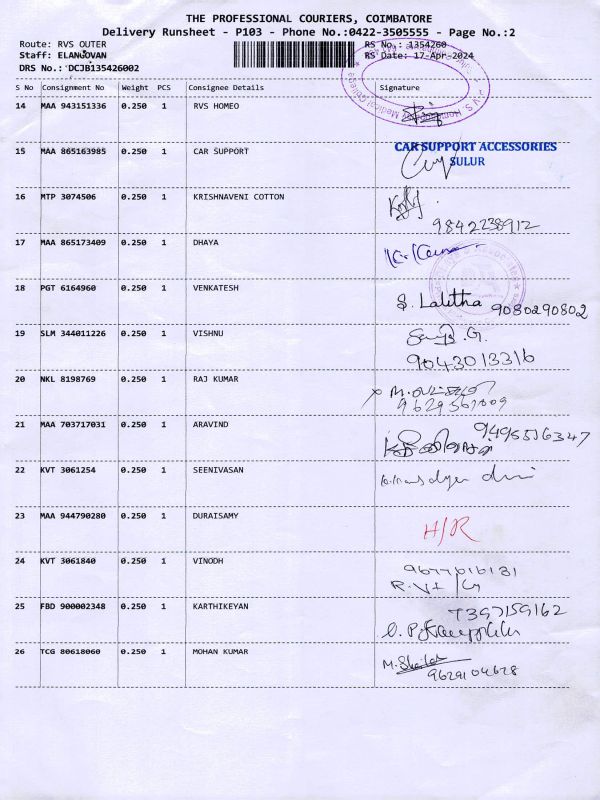 THE PROFESSIONAL COURIERS, COIMBATORE
Delivery Runsheet - P103 - Phone No.:0422-3505555 - Page No.:2
Route: RVS OUTER RS No.: 1354260
Staff: ELANGOVAN RS Date: 17-Apr-2024
DRS No.: DCJB135426002
S No Consignment No Weight PCS Consignee Details Signature
14 MAA 943151336 0.250 1 RVS HOMEO
15 MAA 865163985 0.250 1 CAR SUPPORT CAR SUPPORT ACCESSORIES
SULUR
16 MTP 3074506 0.250 1 KRISHNAVENI COTTON
9842238912
17 MAA 865173409 0.250 1 DHAYA
18 PGT 6164960 0.250 1 VENKATESH S. Lalitha 9080290802
19 SLM 344011226 0.250 1 VISHNU
9043013316
20 NKL 8198769 0.250 1 RAJ KUMAR
21 MAA 703717031 0.250 1 ARAVIND 9495536347
22 KVT 3061254 0.250 1 SEENIVASAN
23 MAA 944790280 0.250 1 DURAISAMY H/R
24 KVT 3061840 0.250 1 VINODH
25 FBD 900002348 0.250 1 KARTHIKEYAN 7397159162
26 TCG 80618060 0.250 1 MOHAN KUMAR
9629104628